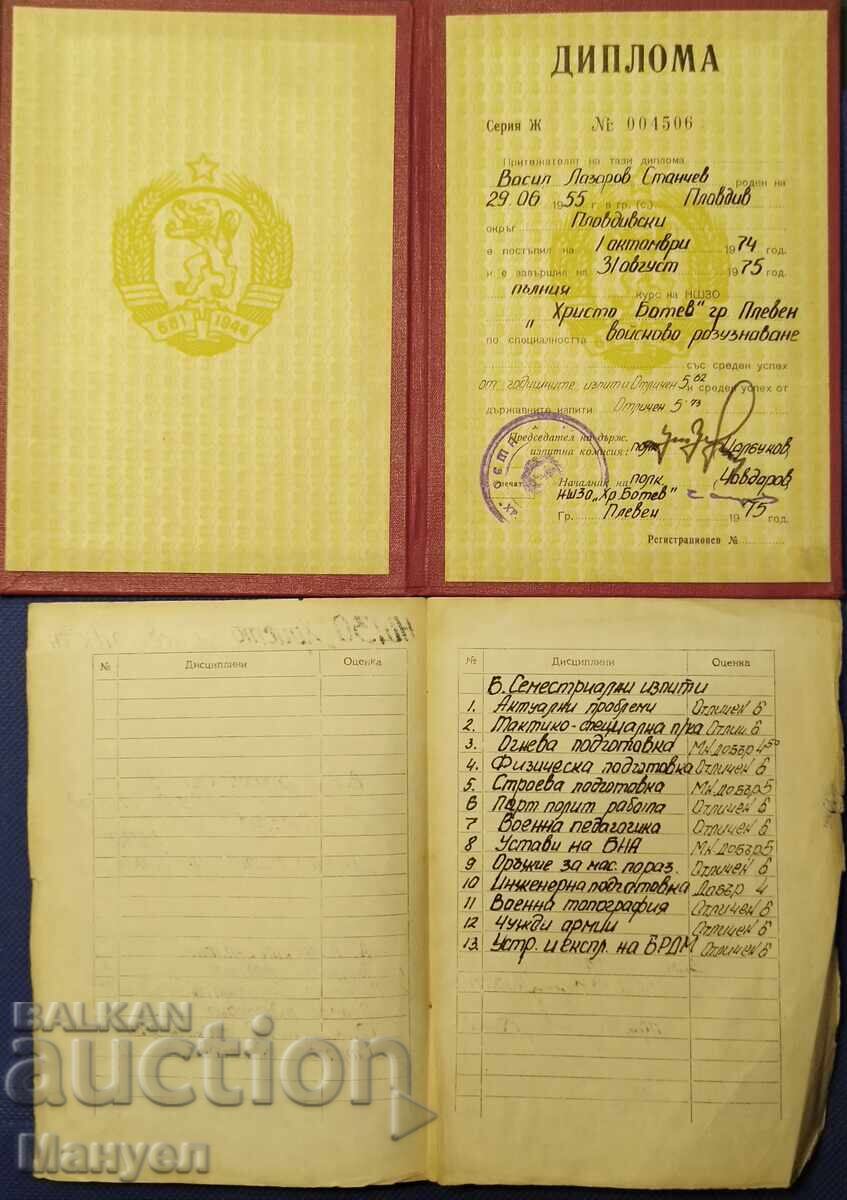 681 1944
ДИПЛОМА
Серия Ж № 004506
Притежателят на тази диплома
Васил Лазаров Станчев роден на
29.06 1955 г. в гр. (с.) Пловдив
окръг Пловдивски
е постъпил на 1 октомври 1974 год.
и е завършил на 31 август 1975 год.
пълния курс на НШЗО
"Христо Ботев" гр. Плевен
по специалността войсково разузнаване
със среден успех
от годишните изпити Отличен 5.62 и среден успех от
държавните изпити Отличен 5.73
Председател на държ.
изпитна комисия: полк.
Печат Началник на полк. (Чавдаров)
НШЗО „Хр. Ботев"
Гр. Плевен 1975 год.
Регистрационен №
№ Дисциплини Оценка
№ Дисциплини Оценка
Б. Семестриални изпити
1. Актуални проблеми Отличен 6
2. Тактико-специална п/ка Отлич. 6
3. Огнева подготовка Мн. добър 4.50
4. Физическа подготовка Отличен 6
5. Строева подготовка Мн. добър 5
6 Парт. полит работа Отличен 6
7 Военна педагогика Отличен 6
8 Устави на БНА Мн. добър 5
9 Оръжие за мас. пораз. Отличен 6
10 Инженерна подготовка Добър 4
11 Военна топография Отличен 6
12 Чужди армии Отличен 6
13. Устр. и експл. на БРДМ Отличен 6
BALKAN
auction
Мануел